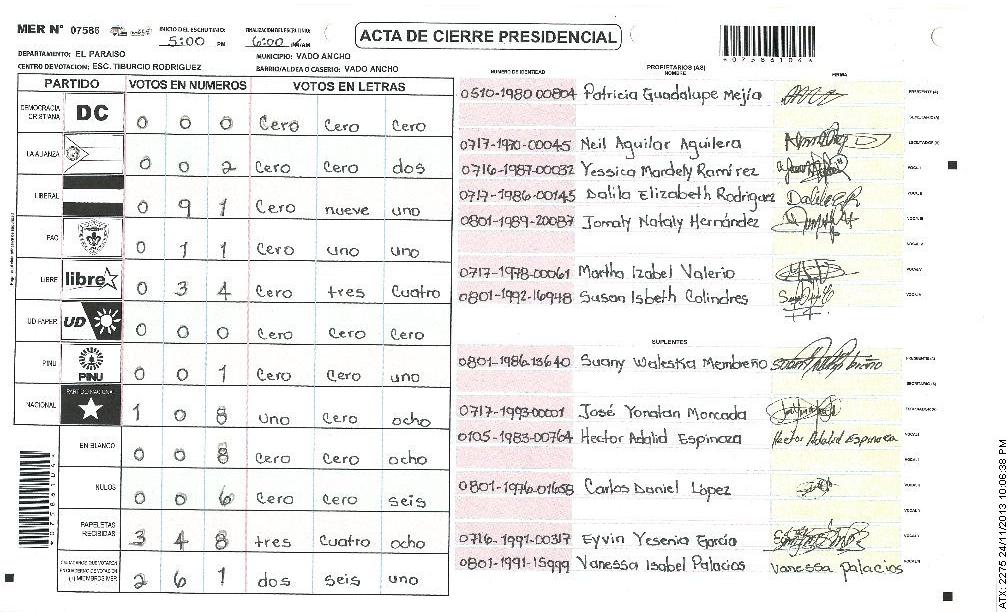 MER N° 07586 INICIO DEL ESCRUTINIO: 5:00 PM FINALIZACION DEL ESCRUTINIO: 6:00 PM/AM
ACTA DE CIERRE PRESIDENCIAL
*07586104*
DEPARTAMENTO: EL PARAISO MUNICIPIO: VADO ANCHO
CENTRO DE VOTACION: ESC. TIBURCIO RODRIGUEZ BARRIO/ALDEA O CASERIO: VADO ANCHO
PARTIDO VOTOS EN NUMEROS VOTOS EN LETRAS
DEMOCRACIA CRISTIANA DC 0 0 0 Cero Cero Cero
LA ALIANZA 0 0 2 Cero Cero dos
LIBERAL 0 9 1 Cero nueve uno
PAC 0 1 1 Cero uno uno
LIBRE libre 0 3 4 Cero tres Cuatro
UD FAPER UD 0 0 0 Cero Cero Cero
PINU PINU 0 0 1 Cero Cero uno
NACIONAL PARTIDO NACIONAL 1 0 8 uno Cero ocho
EN BLANCO 0 0 8 Cero Cero ocho
NULOS 0 0 6 Cero Cero seis
PAPELETAS RECIBIDAS 3 4 8 tres Cuatro ocho
CIUDADANOS QUE VOTARON EN CUADERNO DE VOTACION (+) MIEMBROS MER 2 6 1 dos seis uno
NUMERO DE IDENTIDAD PROPIETARIOS (AS) NOMBRE FIRMA
0510-1980 00804 Patricia Guadalupe Mejía PRESIDENTE (A)
SECRETARIO (A)
0717-1970-00045 Neil Aguilar Aguilera ESCRUTADOR (A)
0716-1987-00032 Yessica Mardely Ramírez VOCAL I
0717-1986-00145 Dalila Elizabeth Rodriguez VOCAL II
0801-1989-20087 Jomaly Nataly Hernández VOCAL III
VOCAL IV
0717-1978-00061 Martha Izabel Valerio VOCAL V
0801-1992-16948 Susan Isbeth Colindres VOCAL VI
SUPLENTES
0801-1986-13640 Suany Waleska Membreño PRESIDENTE (A)
SECRETARIO (A)
0717-1993-00001 José Yonatan Moncada ESCRUTADOR (A)
0105-1983-00764 Hector Adalid Espinoza Hector Adalid Espinoza VOCAL I
VOCAL II
0801-1976-01658 Carlos Daniel López VOCAL III
VOCAL IV
0716-1991-00317 Eyvin Yesenia García VOCAL V
0801-1991-15999 Vanessa Isabel Palacios Vanessa Palacios VOCAL VI
*07586104*
ATX: 2275 24/11/2013 10:06:38 PM